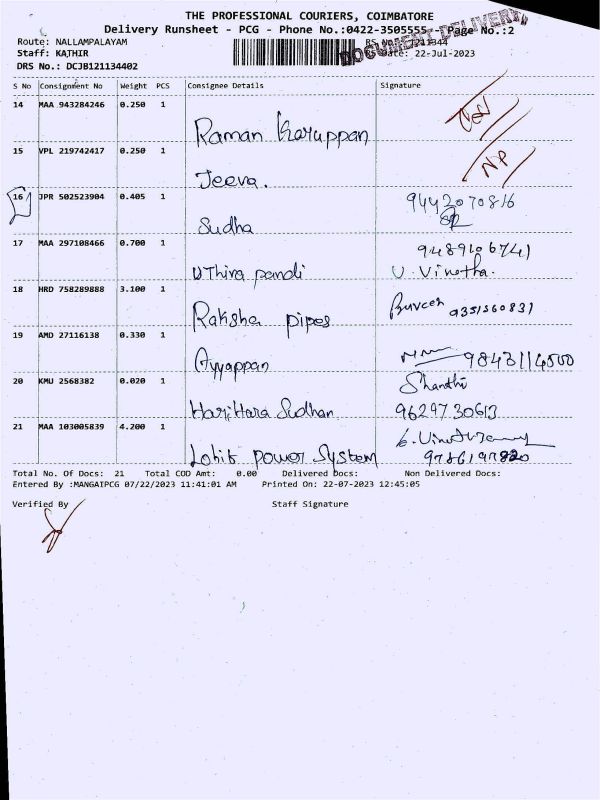 THE PROFESSIONAL COURIERS, COIMBATORE
Delivery Runsheet - PCG - Phone No.:0422-3505555 Page No.:2
DOCUMENT DELIVERY
Route: NALLAMPALAYAM
Staff: KATHIR Date: 22-Jul-2023
DRS No.: DCJB121134402
S No Consignment No Weight PCS Consignee Details Signature
14 MAA 943284246 0.250 1 Raman Karuppan
15 VPL 219742417 0.250 1 Jeeva. NP
16 JPR 502523904 0.405 1 Sudha 9442070816
17 MAA 297108466 0.700 1 UThira pandi 9489106741
U. Vinotha.
18 HRD 758289888 3.100 1 Raksha pipes 9351560831
19 AMD 27116138 0.330 1 Ayyappan 9843114500
20 KMU 2568382 0.020 1 HariHara Sudhan Shanthi
9629730613
21 MAA 103005839 4.200 1 Lohit power System
Total No. Of Docs: 21 Total COD Amt: 0.00 Delivered Docs: Non Delivered Docs:
Entered By :MANGAIPCG 07/22/2023 11:41:01 AM Printed On: 22-07-2023 12:45:05
Verified By Staff Signature